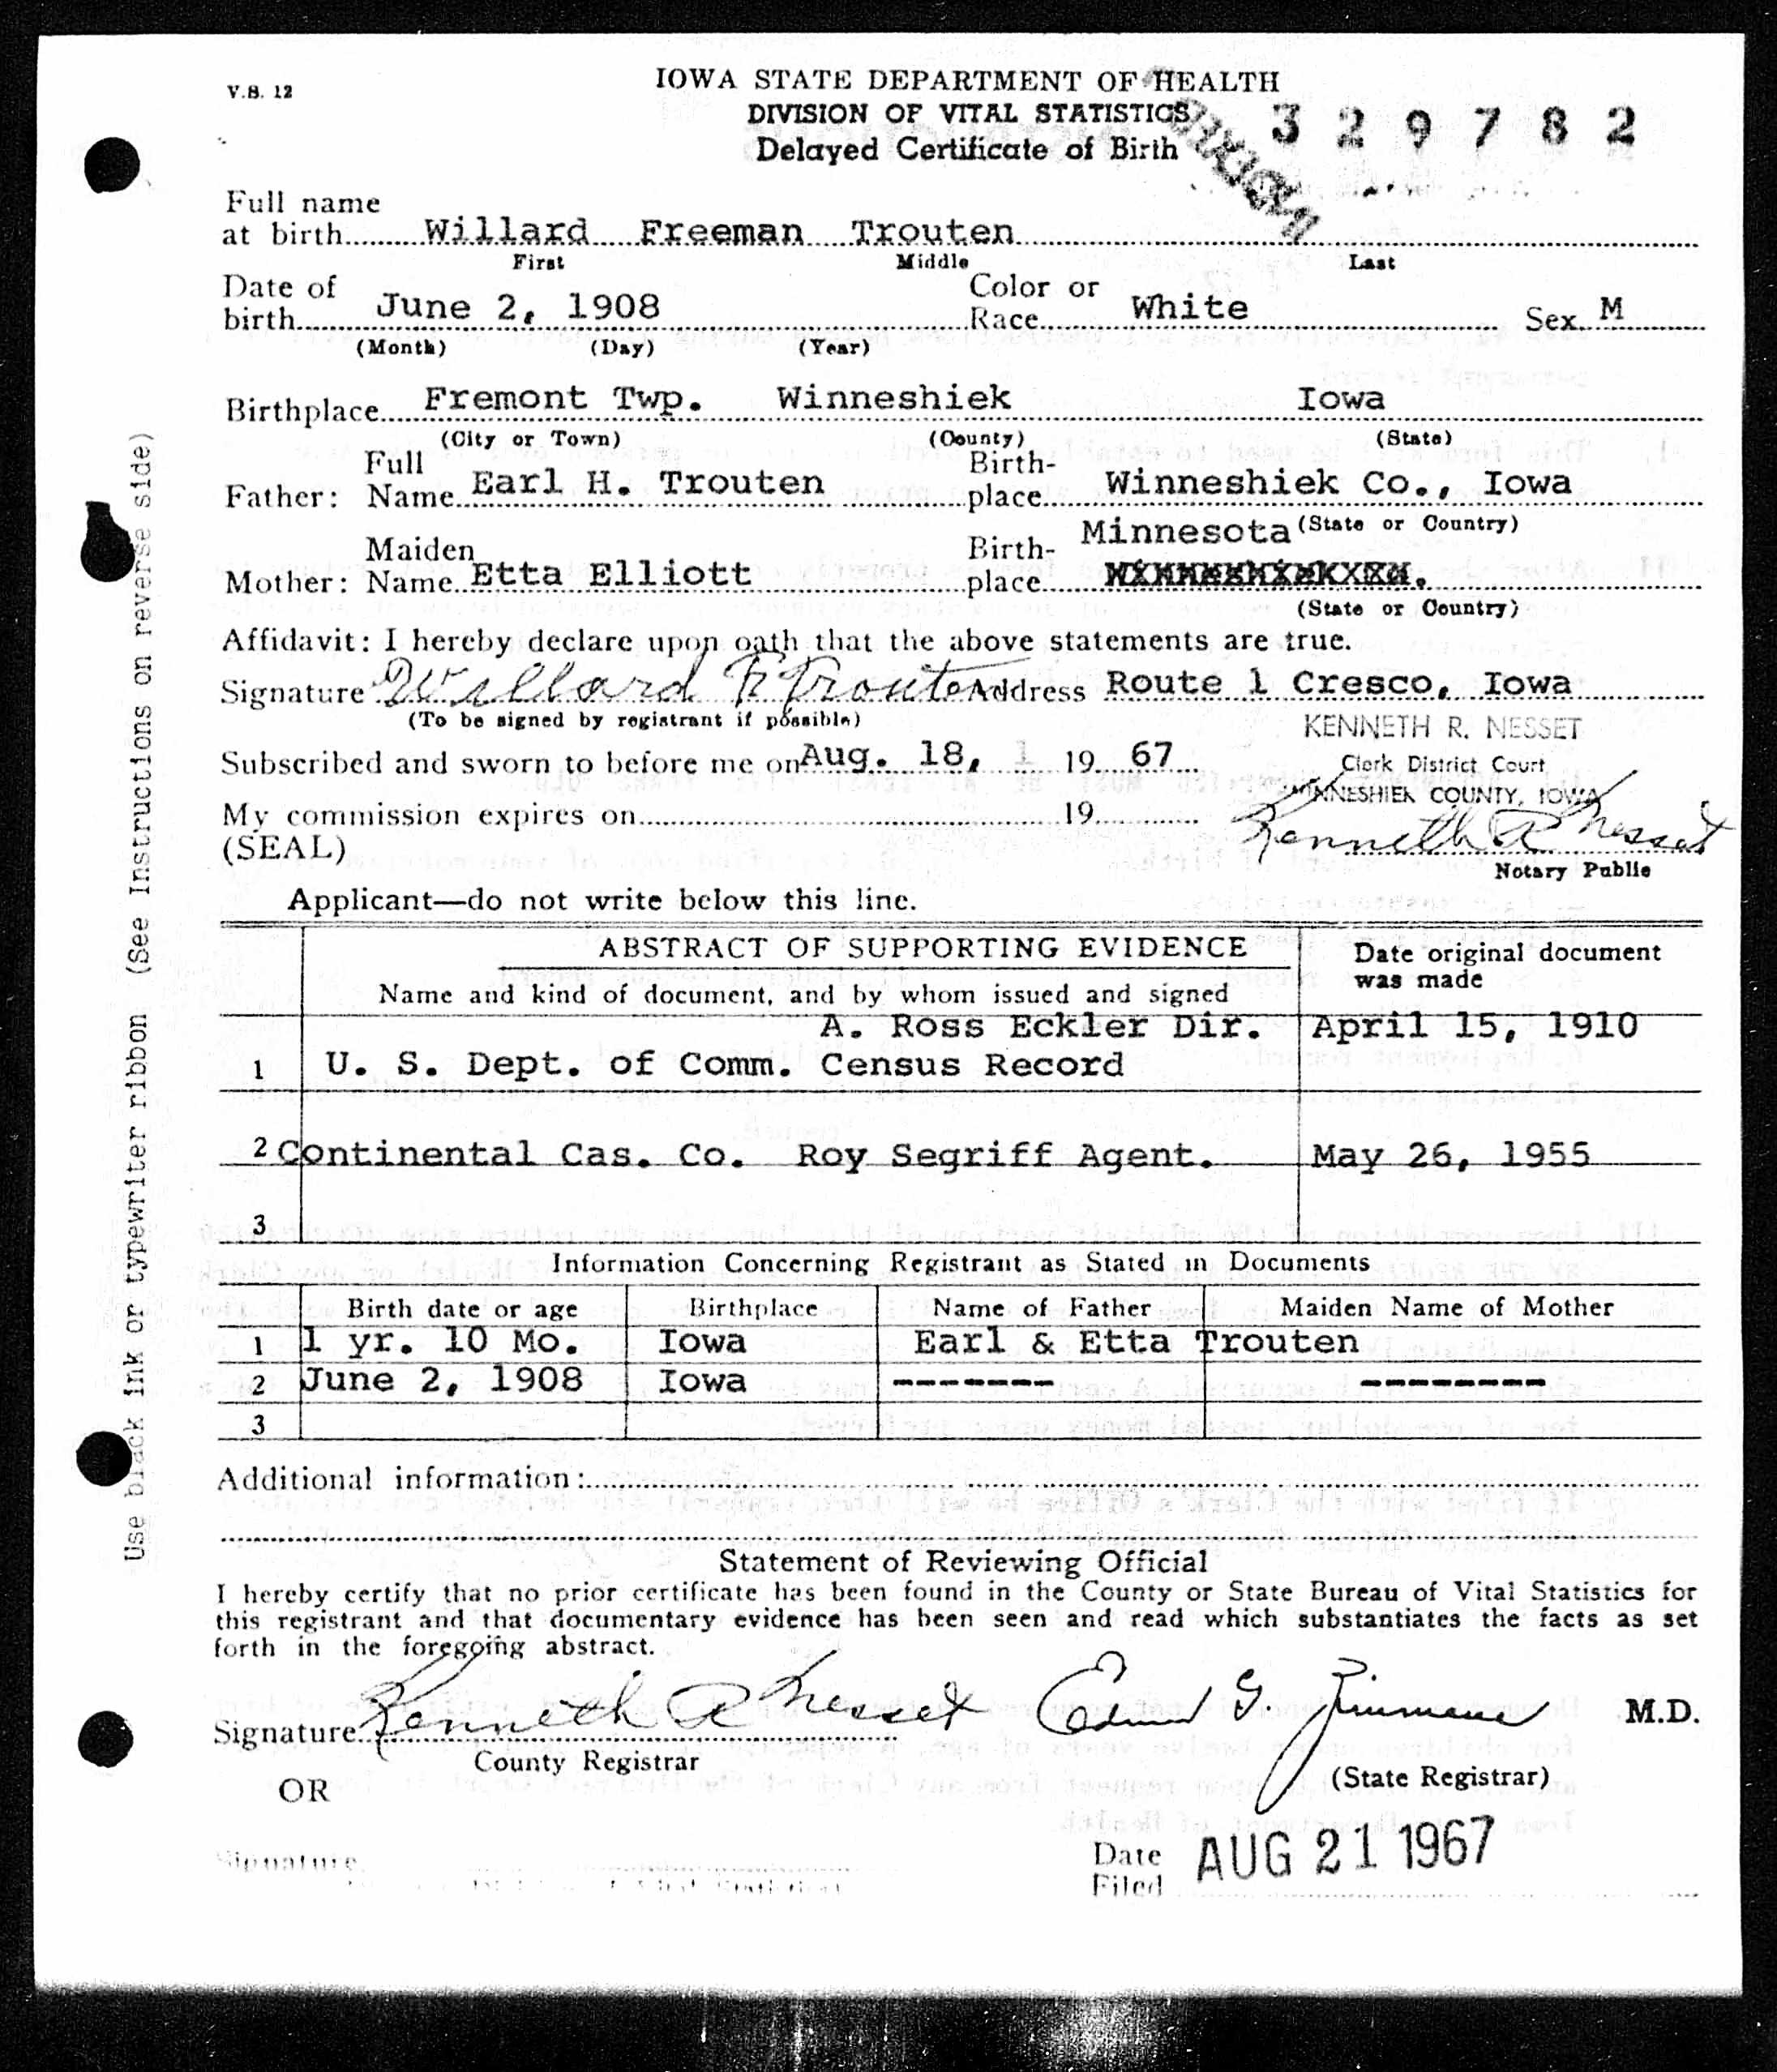 V.S. 12
IOWA STATE DEPARTMENT OF HEALTH
DIVISION OF VITAL STATISTICS
Delayed Certificate of Birth
3 2 9 7 8 2
Full name
at birth Willard Freeman Trouten
First Middle Last
Date of birth June 2, 1908 Color or Race White Sex M
(Month) (Day) (Year)
Birthplace Fremont Twp. Winneshiek Iowa
(City or Town) (County) (State)
Father: Full Name Earl H. Trouten Birth-place Winneshiek Co., Iowa
(State or Country)
Mother: Maiden Name Etta Elliott Birth-place Minnesota
(State or Country)
Affidavit: I hereby declare upon oath that the above statements are true.
Signature Willard F Trouten Address Route 1 Cresco, Iowa
(To be signed by registrant if possible)
KENNETH R. NESSET
Clerk District Court
WINNESHIEK COUNTY, IOWA
Subscribed and sworn to before me on Aug. 18, 1 19 67
My commission expires on 19
Kenneth R Nesset
(SEAL)
Notary Public
Applicant—do not write below this line.
ABSTRACT OF SUPPORTING EVIDENCE
Name and kind of document, and by whom issued and signed
Date original document
was made
A. Ross Eckler Dir. April 15, 1910
1 U. S. Dept. of Comm. Census Record
2 Continental Cas. Co. Roy Segriff Agent. May 26, 1955
3
Information Concerning Registrant as Stated in Documents
Birth date or age Birthplace Name of Father Maiden Name of Mother
1 1 yr. 10 Mo. Iowa Earl & Etta Trouten
2 June 2, 1908 Iowa ------- --------
3
Additional information:
Statement of Reviewing Official
I hereby certify that no prior certificate has been found in the County or State Bureau of Vital Statistics for
this registrant and that documentary evidence has been seen and read which substantiates the facts as set
forth in the foregoing abstract.
Signature Kenneth R Nesset Edmund G. Zimmerer M.D.
County Registrar (State Registrar)
OR
Signature
Date Filed AUG 21 1967
Use black ink or typewriter ribbon (See Instructions on reverse side)